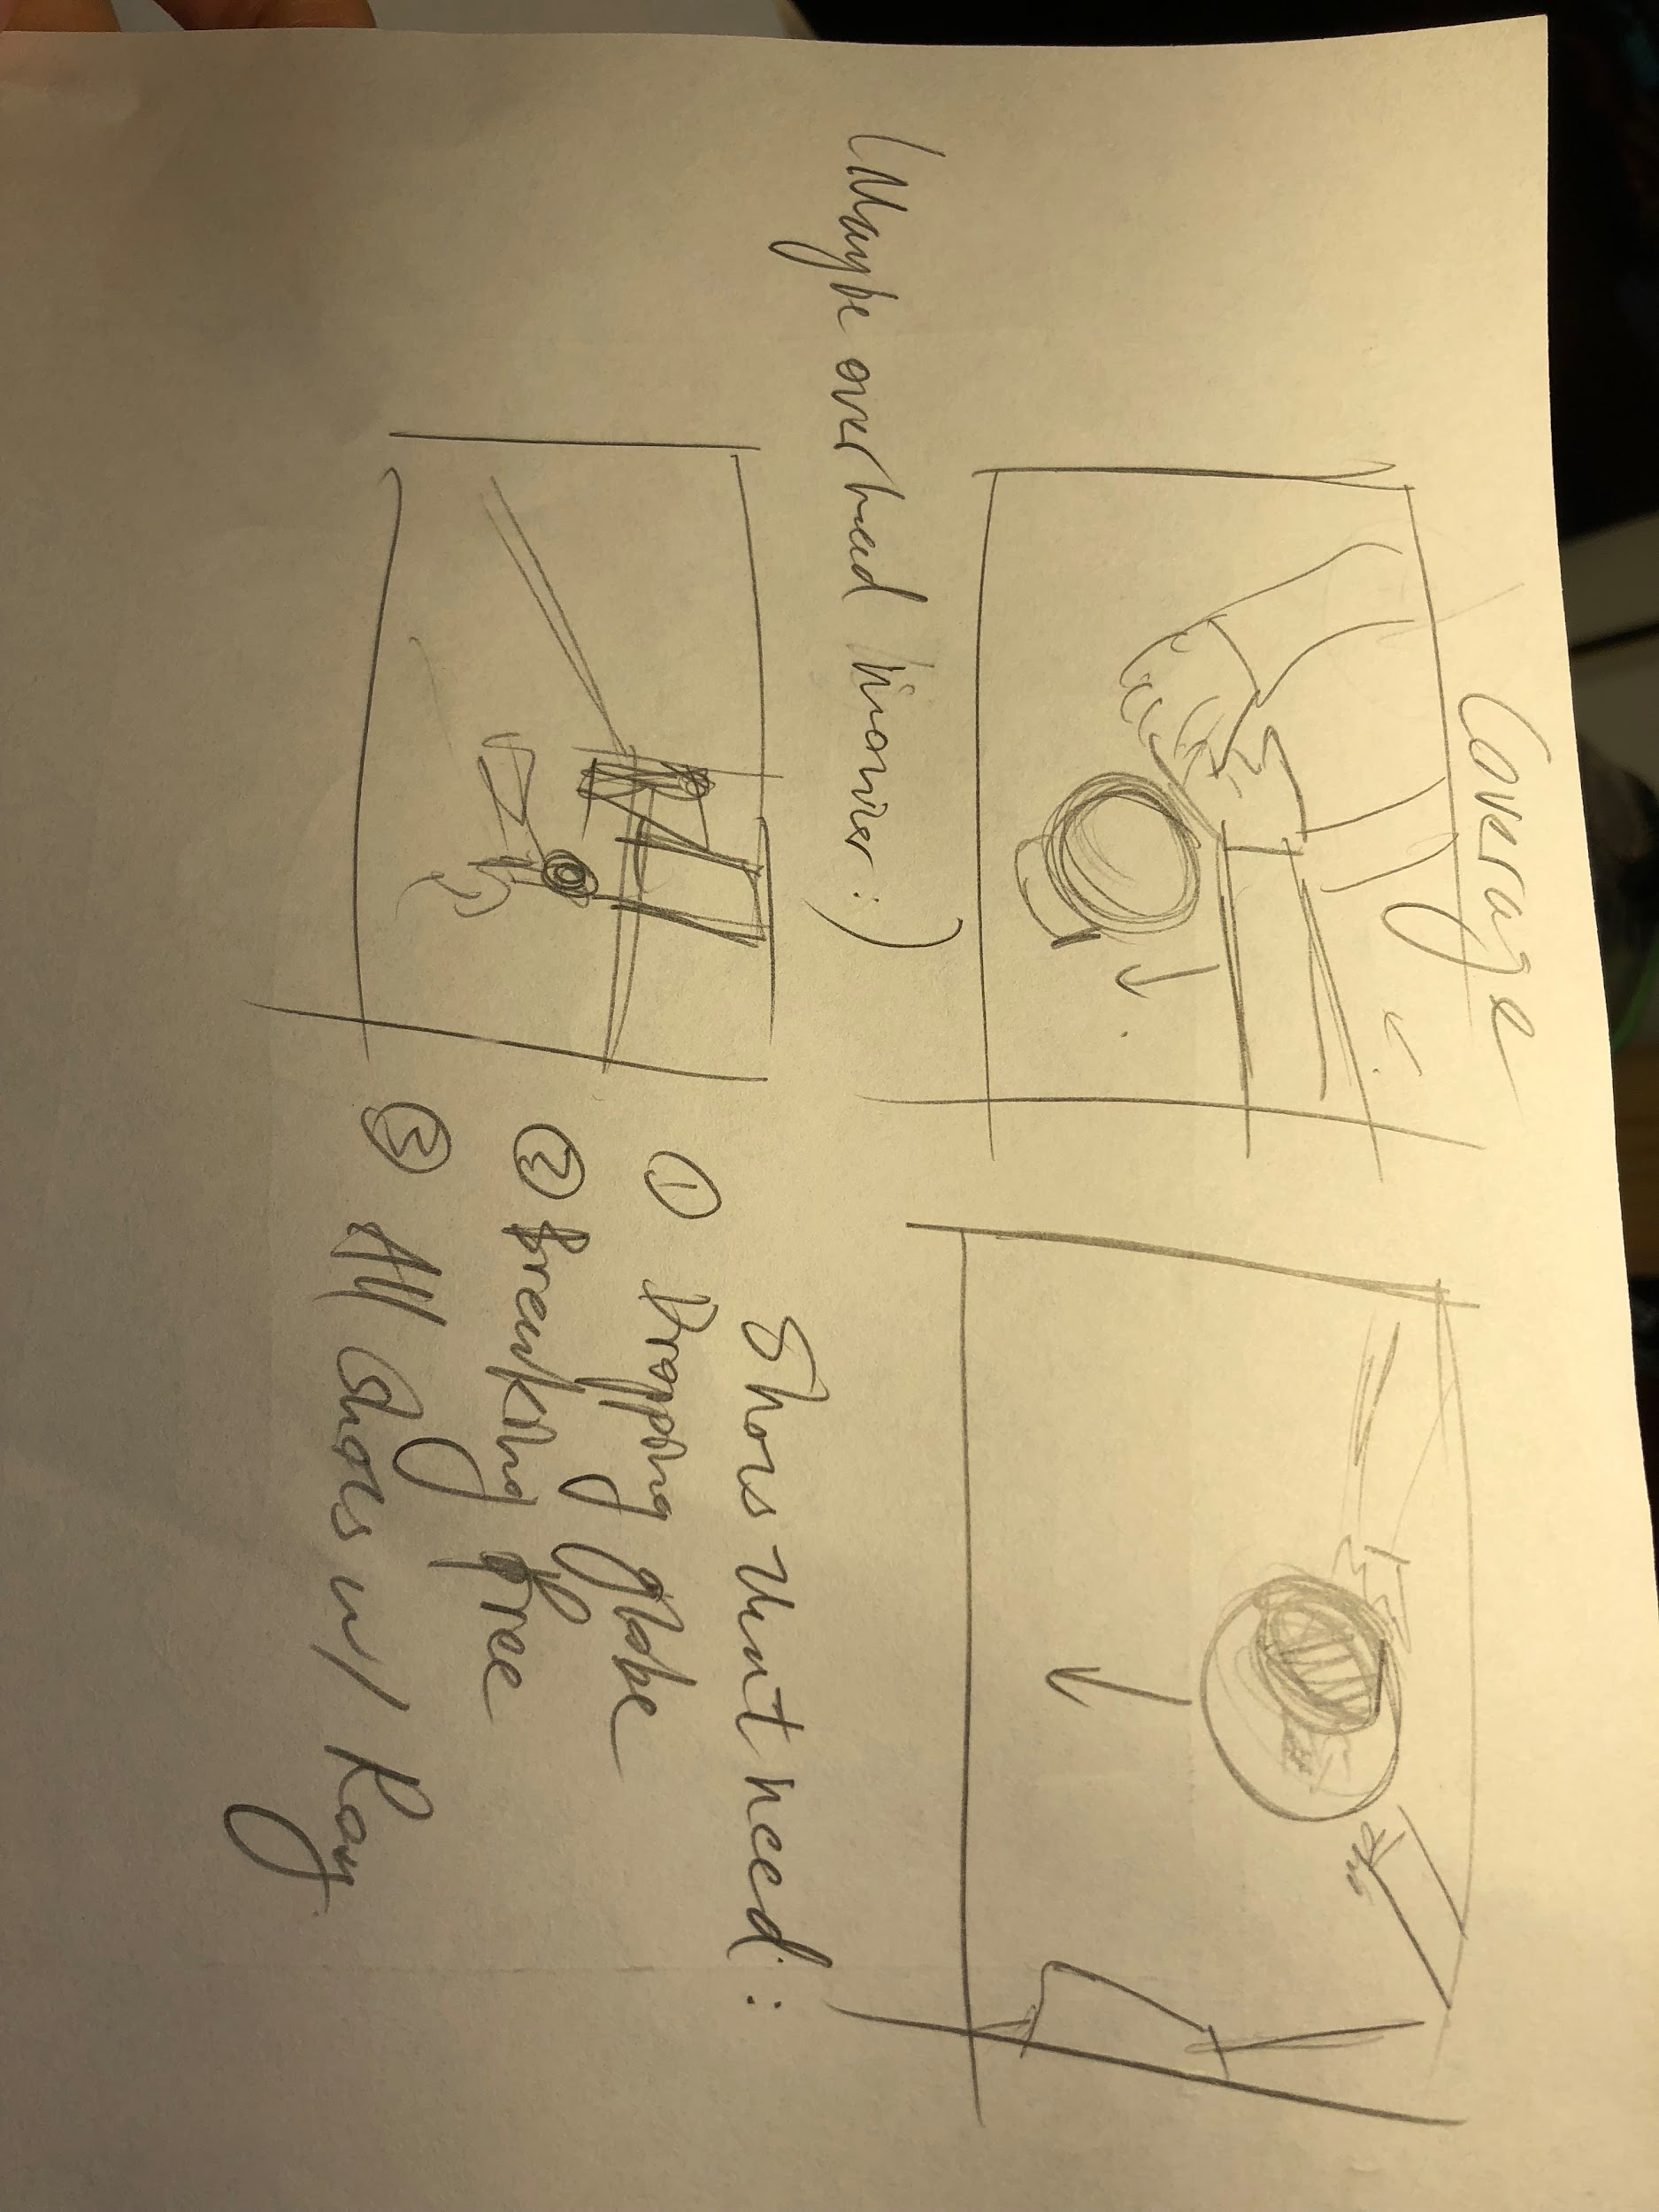 Coverage
(Maybe overhead :)
Shots that need:
① Dropping globe
② Breaking free
③ All shots w/ Ray